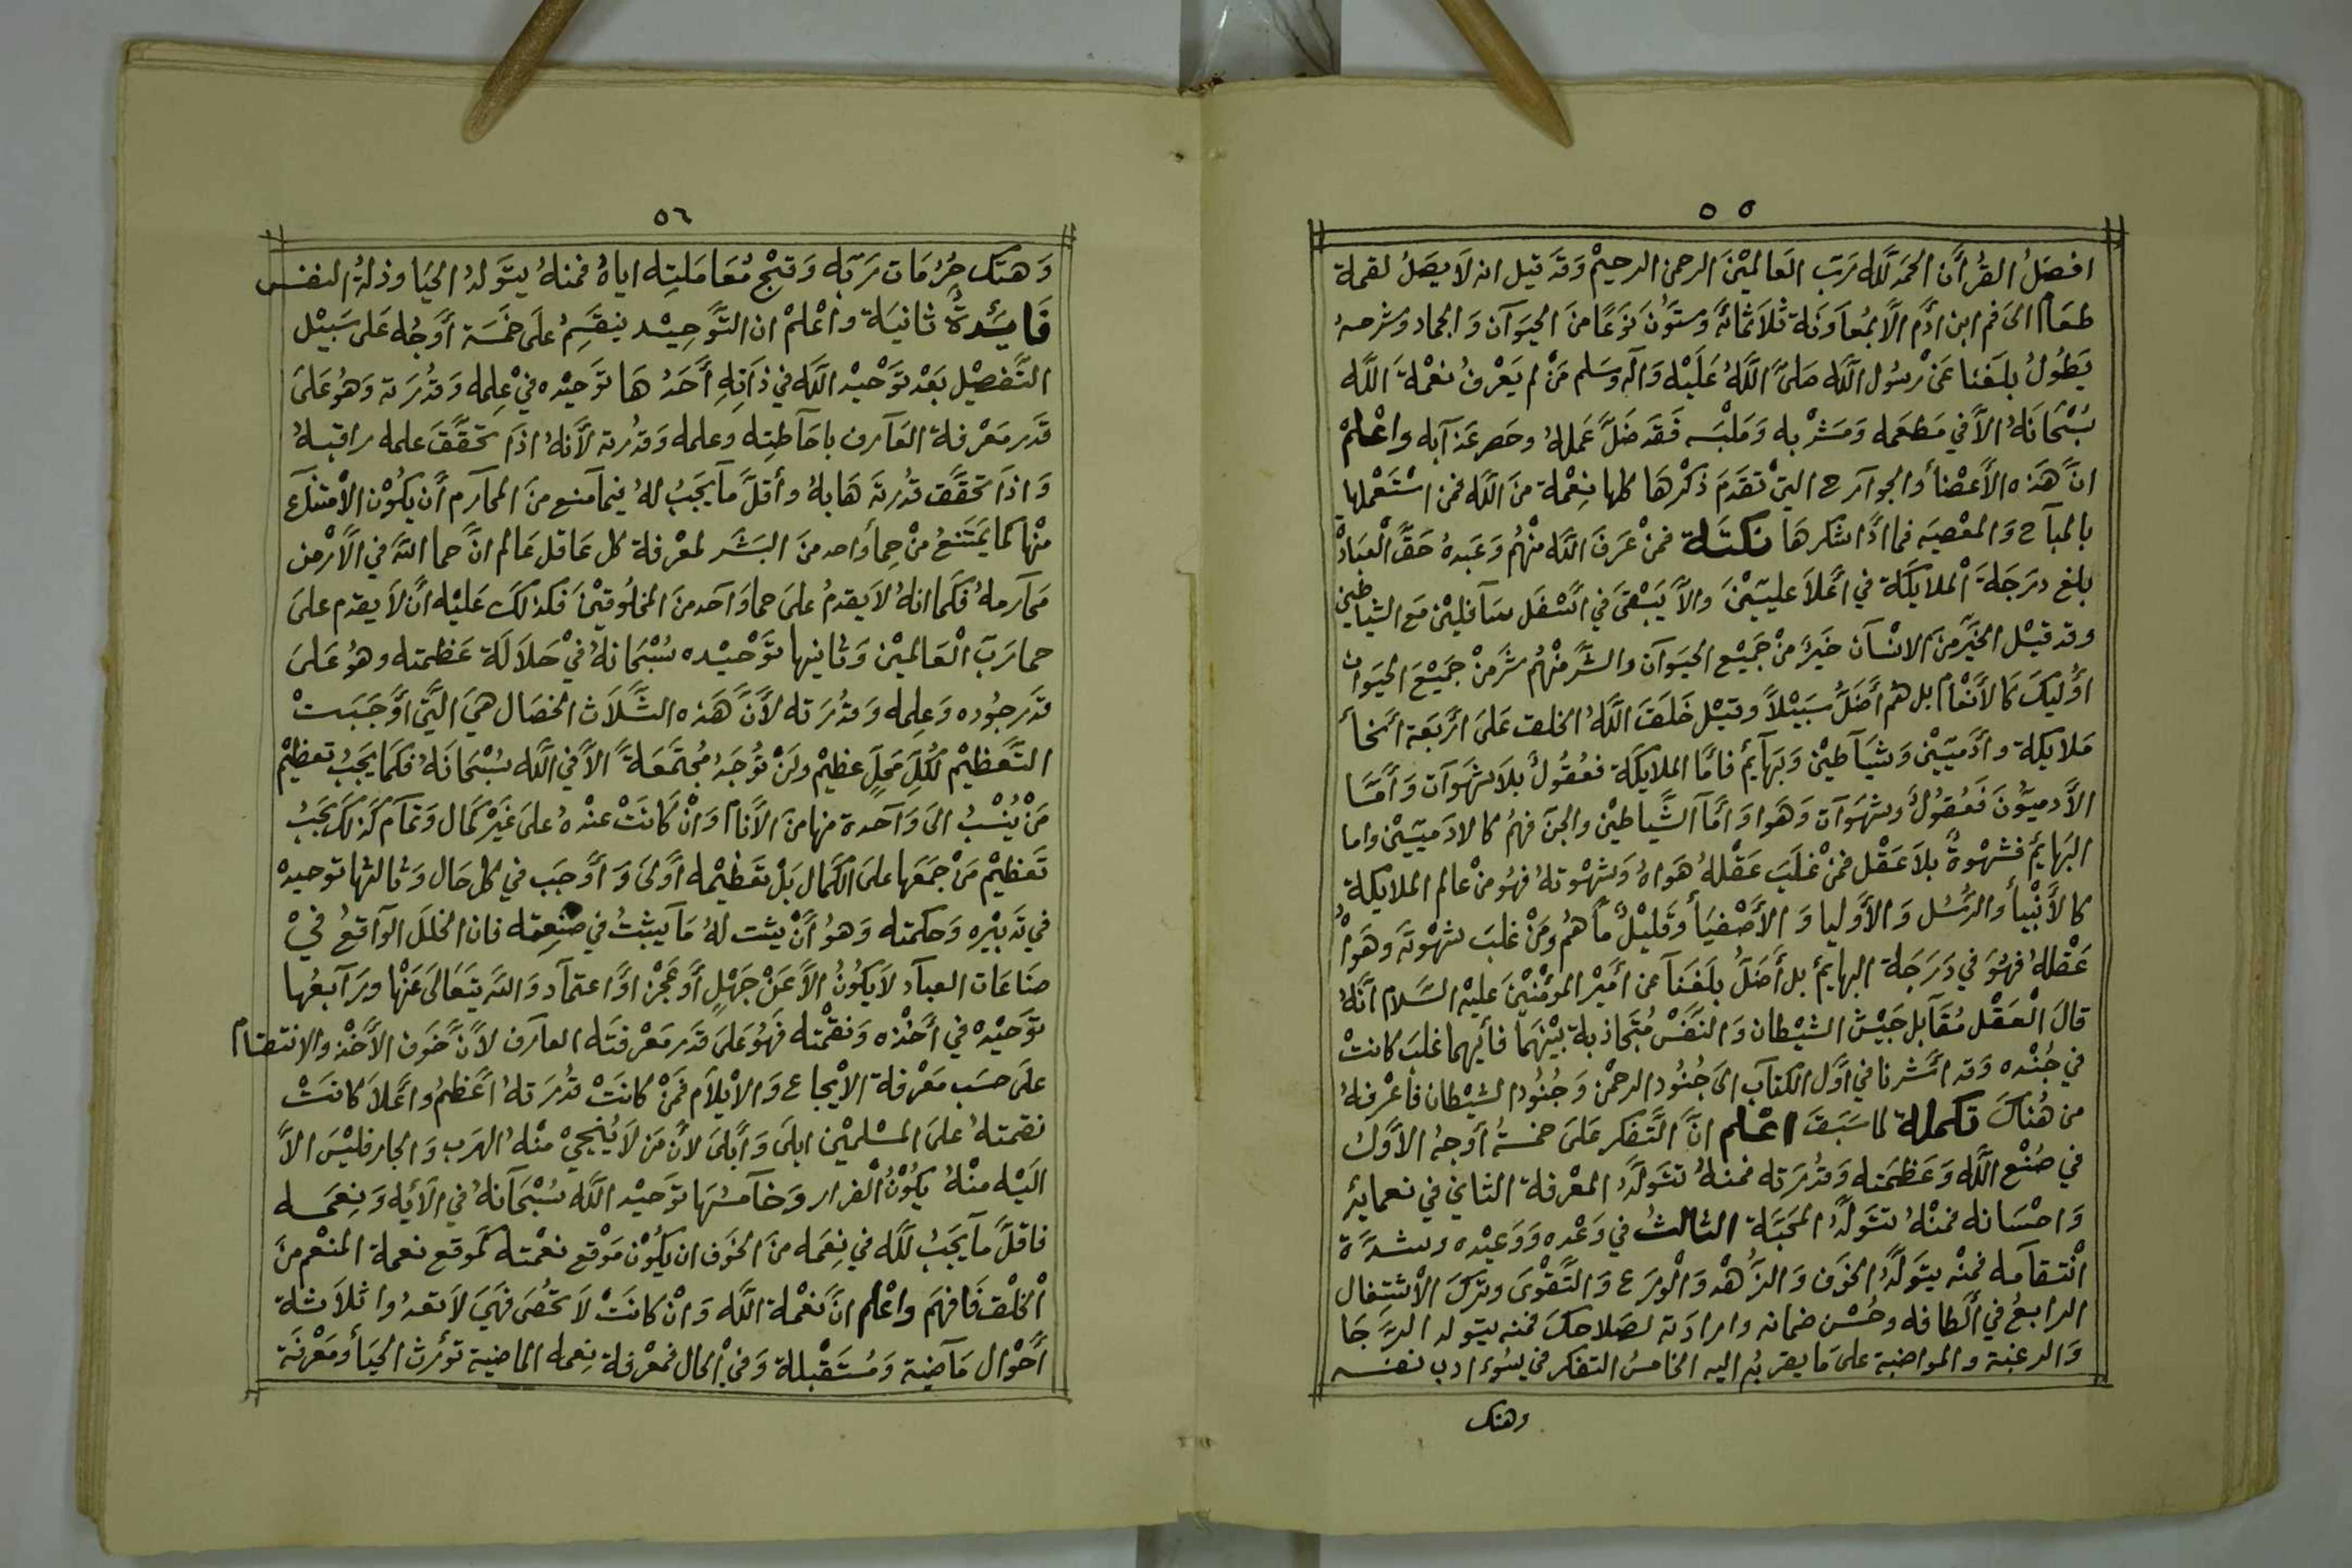 ٥٥
افضل القرأن الحمد لله رب العالمين الرحمن الرحيم وقد قيل انه لا يصل لقمة
طعام الى فم ابن ادم الا بمعاونة ثلاثمائة وستون نوعا من الحيوان والجماد وشرحه
يطول بلغنا عن رسول الله صلى الله عليه وآله وسلم من لم يعرف نعمة الله
سبحانه الا في مطعمه ومشربه وملبسه فقد ضل عمله وحصر عذابه واعلم
ان هذه الأعضأ والجوارح التي تقدم ذكرها كلها نعمة من الله فمن استعملها
بالمباح والمعصيه فما ادا شكرها نكتة فمن عرف الله منهم وعبده حق العباد
بلغ درجة الملايكة في أعلا عليين والا يبقى في اسفل سافلين مع الشياطين
وقد قيل الخير من الانسان خير من جميع الحيوان والشر منهم شر من جميع الحيوان
اوليك كالأنعام بل هم أضل سبيلا وقيل خلق الله الخلق على اربعة انحأ
ملايكة وأدميين وشياطين وبهآيم فاما الملايكة فعقول بلا شهوات وأما
الأدميون فعقول وشهوات وهوا وأما الشياطين والجن فهم كالادميين واما
البهايم فشهوة بلا عقل فمن غلب عقله هواه وشهوته فهو من عالم الملايكة
كالأنبيأ والرسل والأوليا والأصفيأ وقليل ما هم ومن غلب شهوته وهواه
عقله فهو في درجة البهايم بل أضل بلغنا عن أمير المؤمنين عليه السلام انه
قال العقل مقابل جيش الشيطان والنفس متجاذبة بينهما فأيهما غلب كانت
في جنده وقد اشرنا في أول الكتاب الى جنود الرحمن وجنود الشيطان فاعرفه
من هناك تكملة لما سبق اعلم ان التفكر على خمسة أوجه الأول
في صنع الله وعظمته وقدرته فمنه تتولد المعرفة الثاني في نعمايه
واحسانه فمنه تتولد المحبة الثالث في وعده ووعيده وشدة
انتقامه فمنه يتولد الخوف والزهد والورع والتقوى وترك الاشتغال
الرابع في ألطافه وحسن ضمانه وارادته لصلاحك فمنه يتولد الرجا
والرغبة والمواضبة على ما يقربه اليه الخامس التفكر في سوء ادب نفسه
وهتك
٥٦
وهتك حرمات ربه وقبح معاملته اياه فمنه يتولد الحيا وذلة النفس
فايدة ثانية واعلم ان التوحيد ينقسم على خمسة أوجه على سبيل
التفصيل بعد توحيد الله في ذاته أحدها توحيده في علمه وقدرته وهو على
قدر معرفة العارف باحاطته وعلمه وقدرته لأنه اذا تحقق علمه راقبه
واذا تحقق قدرته هابه وأقل ما يجب له فيما منع من المحارم أن يكون الامتناع
منها كما يمتنع من حمأ واحد من البشر لمعرفة كل عاقل عالم ان حما الله في الأرض
محارمه فكما انه لا يقدم على حما واحد من المخلوقين فكذلك عليه ان لا يقدم على
حما رب العالمين وثانيها توحيده سبحانه في جلالة عظمته وهو على
قدر جوده وعلمه وقدرته لأن هذه الثلاث الخصال هي التي أوجبت
التعظيم لكل محل عظيم ولن توجد مجتمعة الا في الله سبحانه فكما يجب تعظيم
من ينسب الى واحدة منها من الأنام وان كانت عنده على غير كمال وتمام كذلك يجب
تعظيم من جمعها على الكمال بل تعظيمه أولى وأوجب في كل حال وثالثها توحيده
في تدبيره وحكمته وهو أن يثبت له ما يثبت في صنعته فان الخلل الواقع في
صناعات العباد لا يكون الا عن جهل أو عجز او اعتماد والله يتعالى عنها ورابعها
توحيده في أخذه ونقمته فهو على قدر معرفته العارف لأن خوف الأخذ والانتقام
على حسب معرفة الايجاع والايلام فمن كانت قدرته اعظم واعلا كانت
نقمته على المسلمين ابلى وأبلى لأن من لا ينجي منه الهرب والجار فليس الا
اليه منه يكون الفرار وخامسها توحيد الله سبحانه في الأيه ونعمه
فاقل ما يجب لله في نعمه من الخوف ان يكون موقع نعمته كموقع نعمة المنعم من
الخلق فافهم واعلم ان نعمة الله وان كانت لا تحصى فهي لا تعدوا ثلاثة
أحوال ماضية ومستقبلة وفي الحال فمعرفة نعمه الماضية تؤرث الحيأ ومعرفة